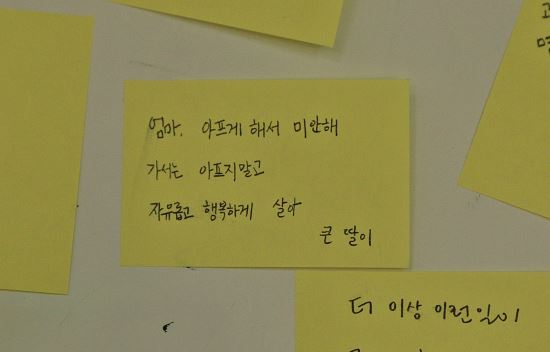 엄마, 아프게 해서 미안해
가서는 아프지말고
자유롭고 행복하게 살아
큰 딸이
더 이상 이런일이